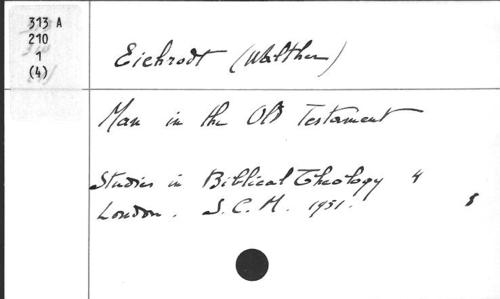 313 A
210
1
(4)
Eichrodt (Walther)
Man in the Old Testament
Studies in Biblical Theology 4
London. S.C.M. 1951.
8